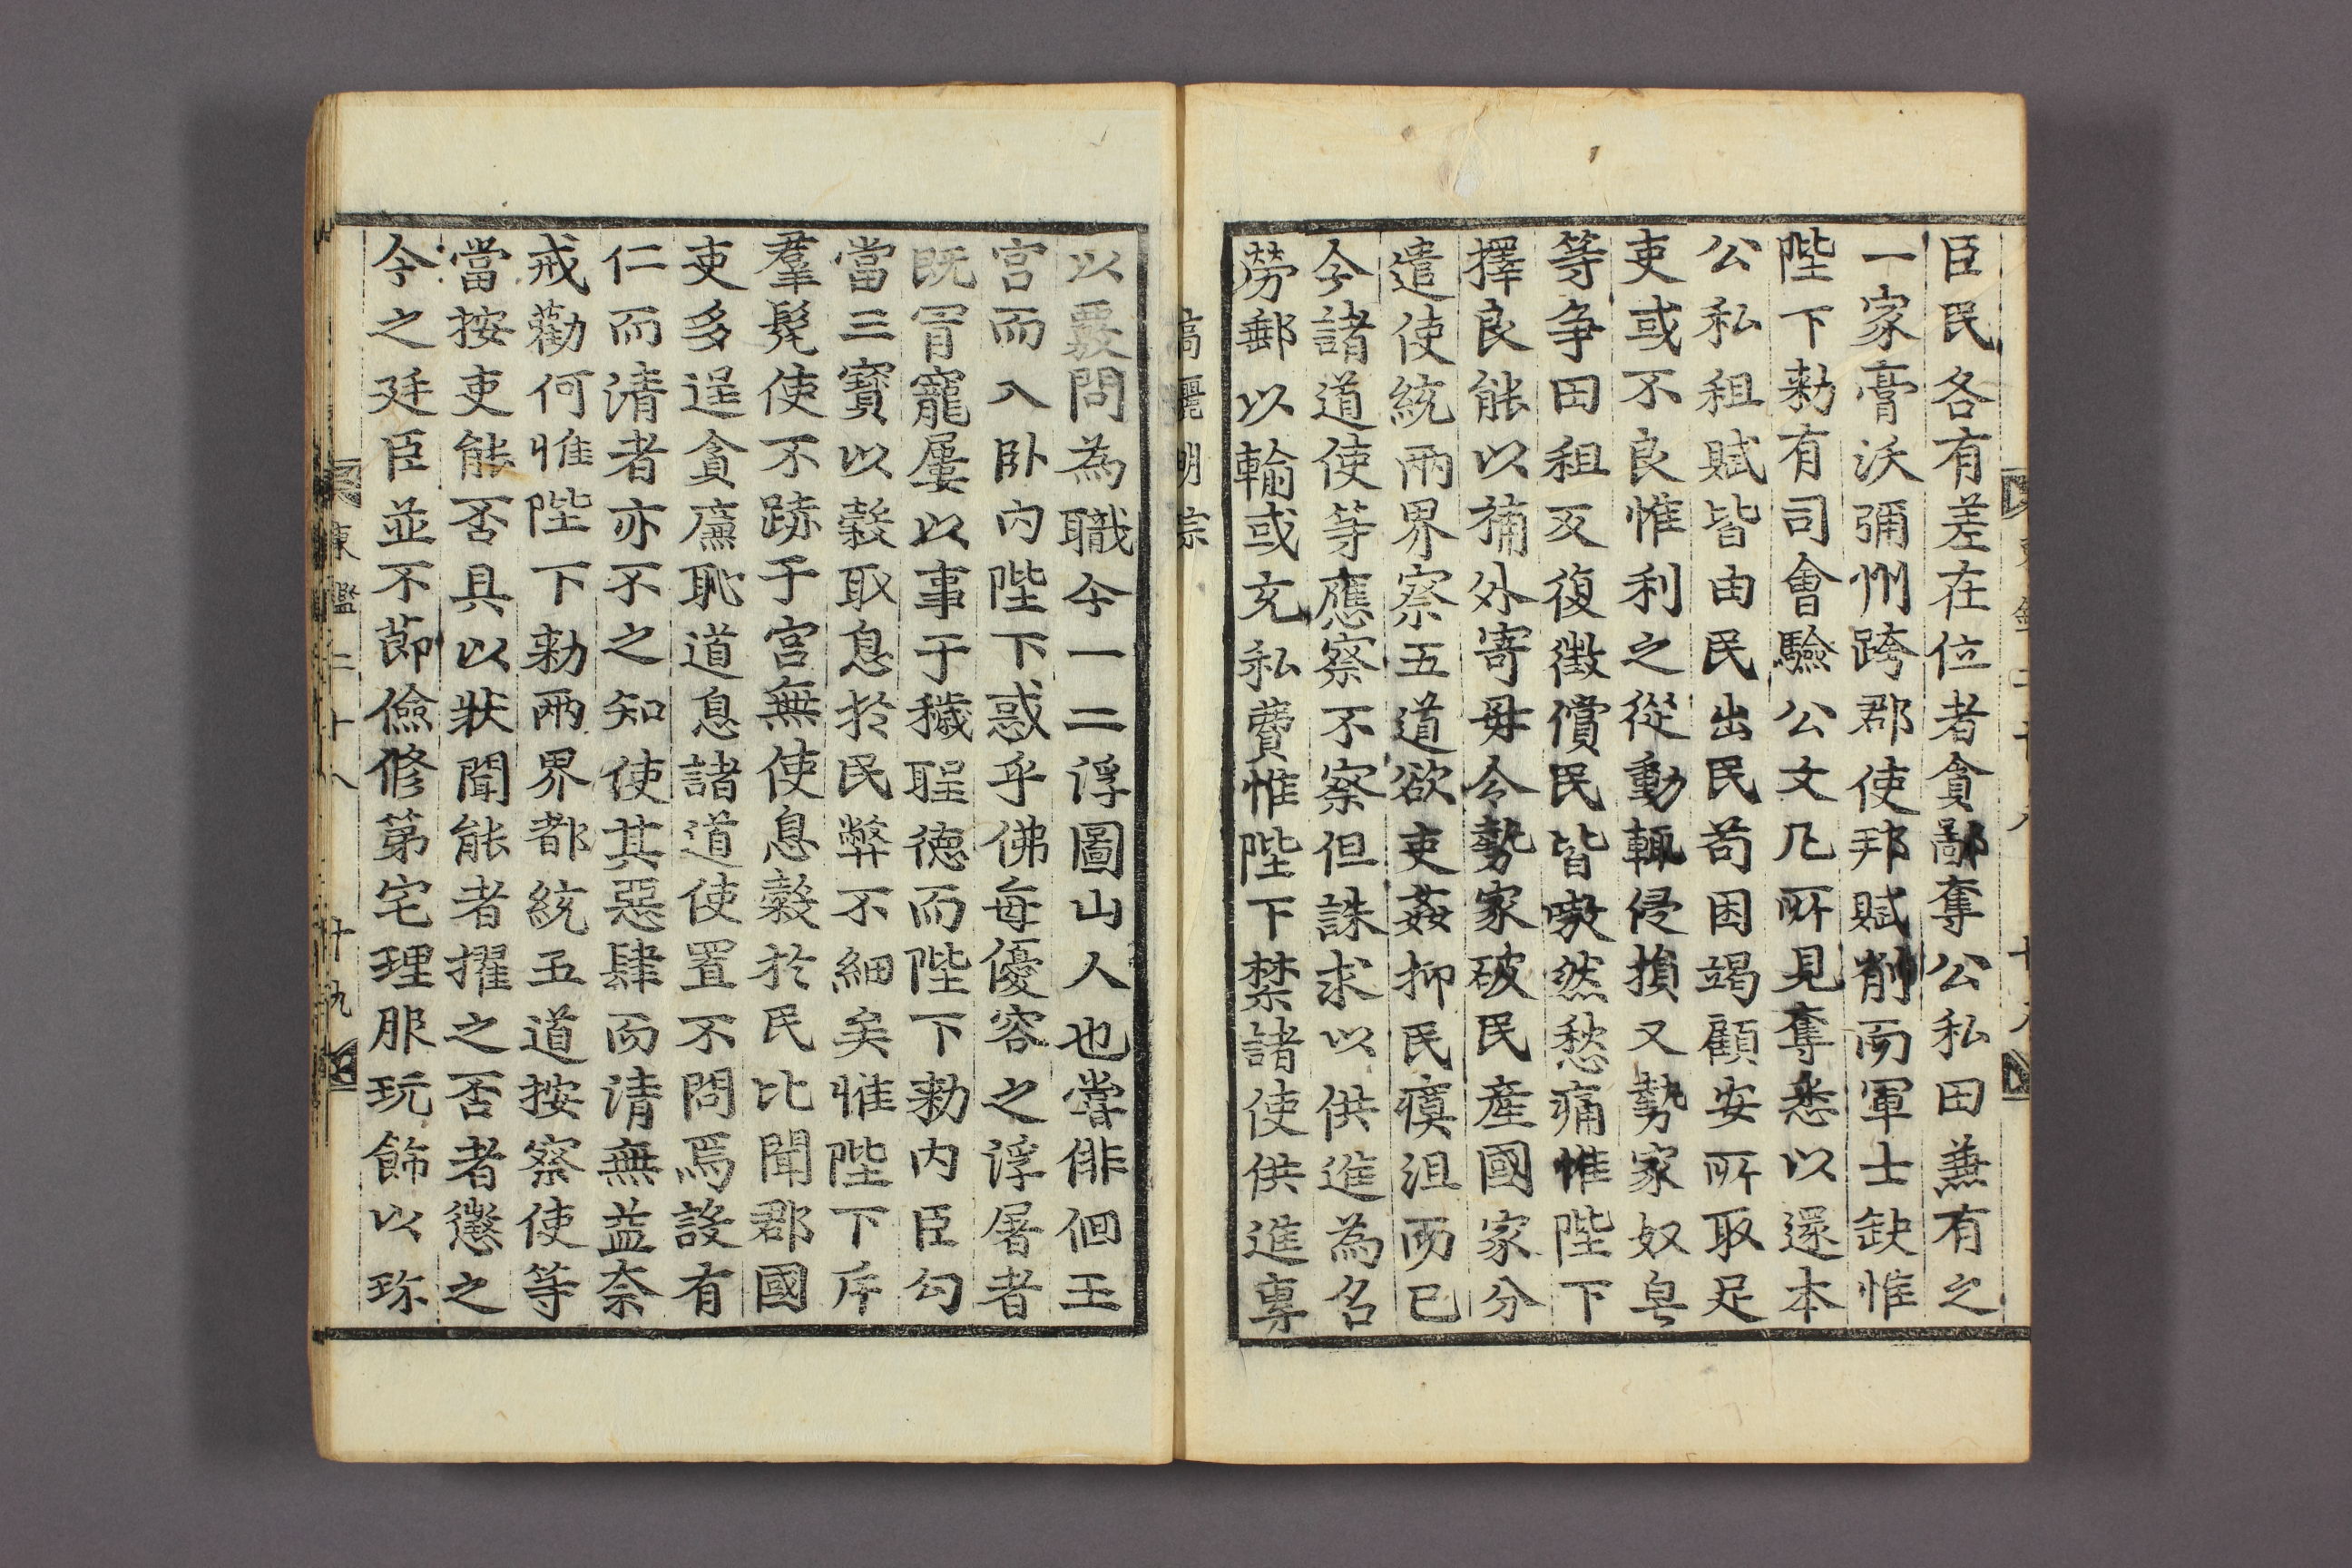 臣民各有差在位者貪鄙奪公私田兼有之
一家膏沃彌州跨郡使邦賦削而軍士缺惟
陛下勑有司會驗公文凡所見奪悉以還本
公私租賦皆由民出民苟困竭顧安所取足
吏或不良惟利之從動輒侵損又勢家奴皂
等争田租又復徵償民皆嗷然愁痛惟陛下
擇良能以補外寄毋令勢家破民產國家分
遣使統兩界察五道欲吏姦抑民瘼沮而已
今諸道使等應察不察但誅求以供進為名
勞郵以輸或充私費惟陛下禁諸使供進專
高麗明宗
以覈問為職今一二浮圖山人也嘗徘佪王
宮而入卧內陛下惑乎佛每優容之浮屠者
既冐寵屢以事于穢聖德而陛下勑內臣勾
當三寶以穀取息於民弊不細矣惟陛下斥
羣髡使不跡于宮無使息穀於民比聞郡國
吏多逞貪廉恥道息諸道使置不問焉設有
仁而清者亦不之知使其惡肆而清無益奈
戒勸何惟陛下勑兩界都統五道按察使等
當按吏能否具以狀聞能者擢之否者懲之
今之廷臣並不節儉修第宅理服玩飾以珎
東鑑二十八 廿九